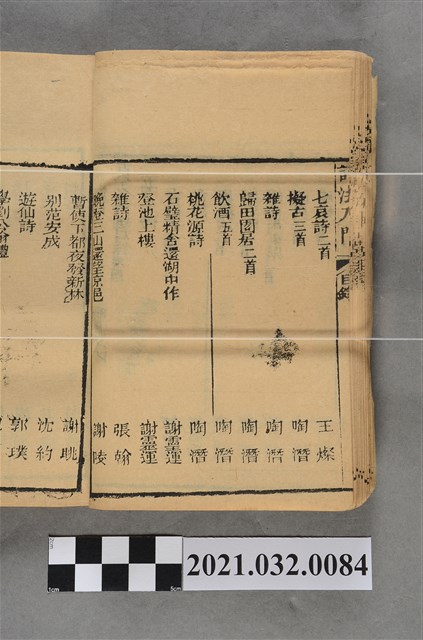 七哀詩二首 王燦
擬古三首 陶潛
雜詩 陶潛
歸田園居二首 陶潛
飲酒五首 陶潛
桃花源詩 陶潛
石壁精舍還湖中作 謝靈運
登池上樓 謝靈運
雜詩 張翰
晚登三山還望京邑 謝朓
暫使下都夜發新林 謝眺
別范安成 沈約
遊仙詩 郭璞
學劉公幹體
目錄
1cm
5cm
2021.032.0084